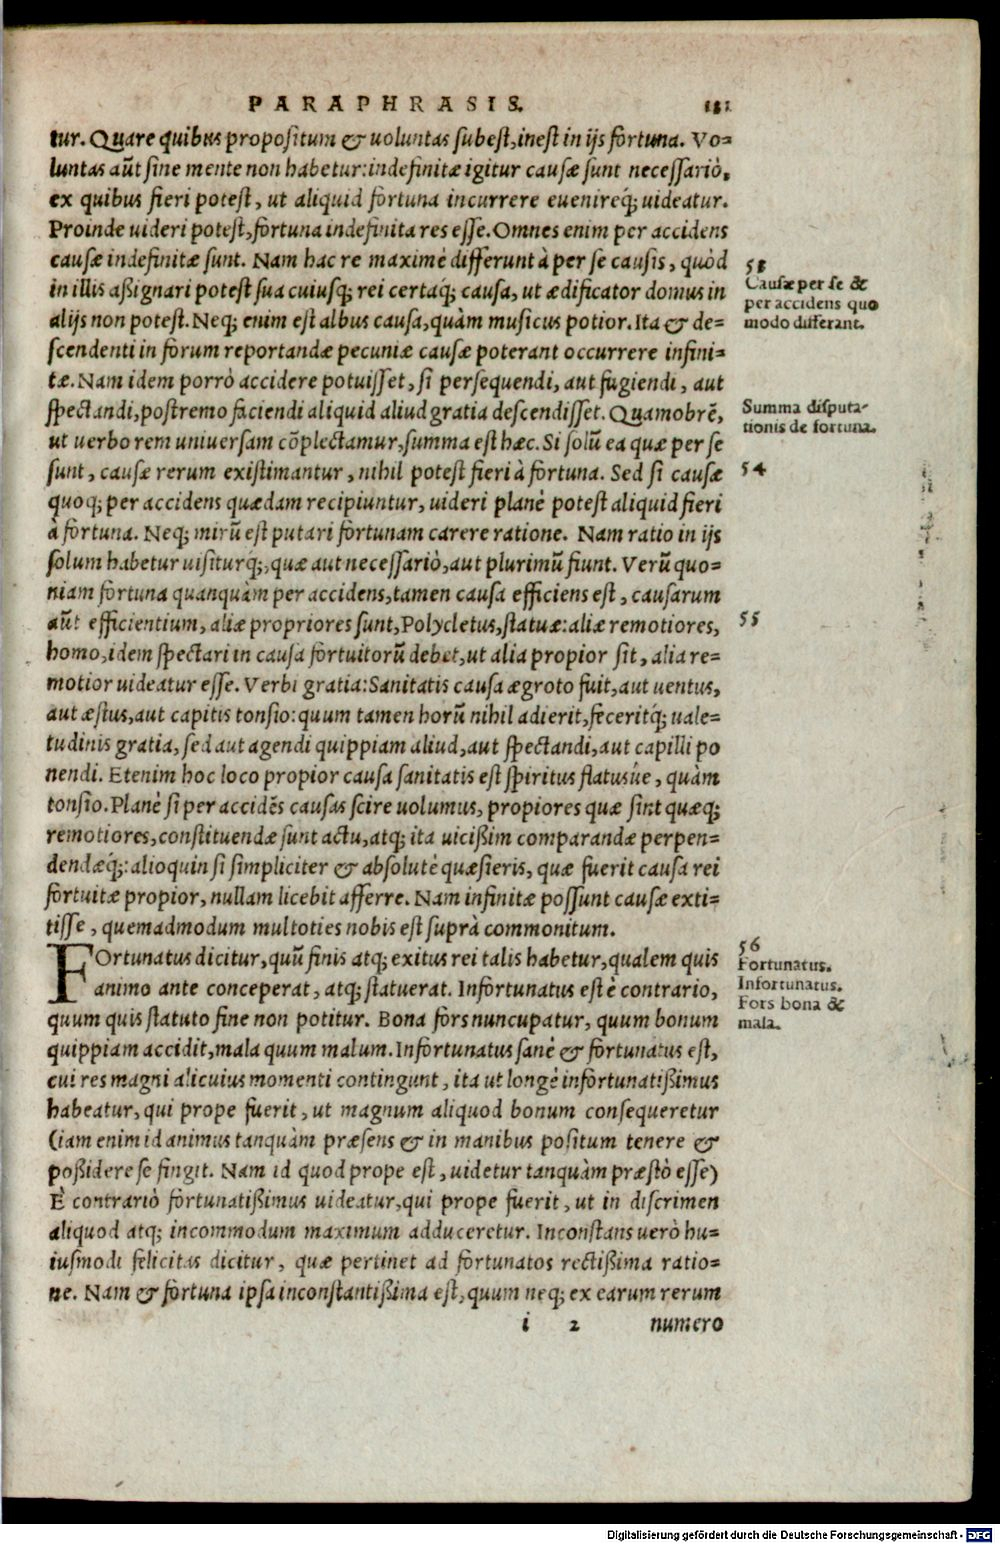 PARAPHRASIS. 131
tur. Quare quibus propositum & uoluntas subest, inest in ijs fortuna. Vo-
luntas aũt sine mente non habetur: indefinitæ igitur causæ sunt necessariò,
ex quibus fieri potest, ut aliquid fortuna incurrere euenireq́; uideatur.
Proinde uideri potest, fortuna indefinita res esse. Omnes enim per accidens
causæ indefinitæ sunt. Nam hac re maximè differunt à per se causis, quòd
in illis aßignari potest sua cuiusq; rei certaq; causa, ut ædificator domus in
alijs non potest. Neq; enim est albus causa, quàm musicus potior. Ita & de-
scendenti in forum reportandæ pecuniæ causæ poterant occurrere infini-
tæ. Nam idem porrò accidere potuisset, si persequendi, aut fugiendi, aut
spectandi, postremo faciendi aliquid aliud gratia descendisset. Quamobrẽ,
ut uerbo rem uniuersam cõplectamur, summa est hæc. Si solũ ea quæ per se
sunt, causæ rerum existimantur, nihil potest fieri à fortuna. Sed si causæ
quoq; per accidens quædam recipiuntur, uideri planè potest aliquid fieri
à fortuna. Neq; mirũ est putari fortunam carere ratione. Nam ratio in ijs
solum habetur uisiturq́;, quæ aut necessariò, aut plurimũ fiunt. Verũ quo-
niam fortuna quanquàm per accidens, tamen causa efficiens est, causarum
aũt efficientium, aliæ propriores sunt, Polycletus, statuæ: aliæ remotiores,
homo, idem spectari in causa fortuitorũ debet, ut alia propior sit, alia re-
motior uideatur esse. Verbi gratia: Sanitatis causa ægroto fuit, aut uentus,
aut æstus, aut capitis tonsio: quum tamen horũ nihil adierit, feceritq́; uale-
tudinis gratia, sed aut agendi quippiam aliud, aut spectandi, aut capilli po
nendi. Etenim hoc loco propior causa sanitatis est spiritus flatusúe, quàm
tonsio. Planè si per accidẽs causas scire uolumus, propiores quæ sint quæq;
remotiores, constituendæ sunt actu, atq; ita uicißim comparandæ perpen-
dendæq́;: alioquin si simpliciter & absolutè quæsieris, quæ fuerit causa rei
fortuitæ propior, nullam licebit afferre. Nam infinitæ possunt causæ exti-
tisse, quemadmodum multoties nobis est suprà commonitum.
FOrtunatus dicitur, quũ finis atq; exitus rei talis habetur, qualem quis
animo ante conceperat, atq; statuerat. Infortunatus est è contrario,
quum quis statuto fine non potitur. Bona fors nuncupatur, quum bonum
quippiam accidit, mala quum malum. Infortunatus sanè & fortunatus est,
cui res magni alicuius momenti contingunt, ita ut longè infortunatißimus
habeatur, qui prope fuerit, ut magnum aliquod bonum consequeretur
(iam enim id animus tanquàm præsens & in manibus positum tenere &
poßidere se fingit. Nam id quod prope est, uidetur tanquàm præstò esse)
È contrariò fortunatißimus uideatur, qui prope fuerit, ut in discrimen
aliquod atq; incommodum maximum adduceretur. Inconstans uerò hu-
iusmodi felicitas dicitur, quæ pertinet ad fortunatos rectißima ratio-
ne. Nam & fortuna ipsa inconstantißima est, quum neq; ex earum rerum
i 2 numero
Causæ per se &
per accidens quo
modo differant.
Summa disputa-
tionis de fortuna.
54
55
56
Fortunatus.
Infortunatus.
Fors bona &
mala.
Digitalisierung gefördert durch die Deutsche Forschungsgemeinschaft - DFG